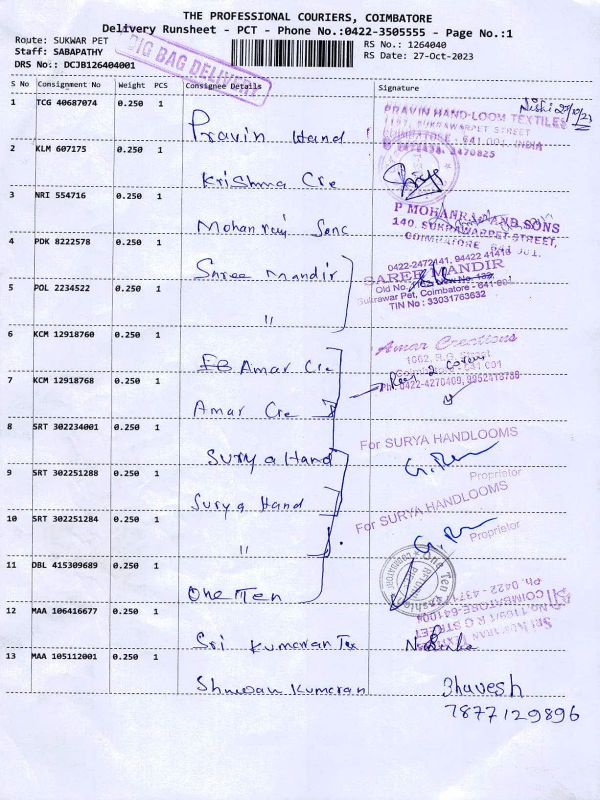 THE PROFESSIONAL COURIERS, COIMBATORE
Delivery Runsheet - PCT - Phone No.:0422-3505555 - Page No.:1
Route: SUKWAR PET
Staff: SABAPATHY
DRS No:: DCJB126404001
RS No.: 1264040
RS Date: 27-Oct-2023
BIG BAG DELIVERY
S No Consignment No Weight PCS Consignee Details Signature
1 TCG 40687074 0.250 1
Pravin Hand
PRAVIN HAND-LOOM TEXTILES
SUKRAWARPET STREET
COIMBATORE - 641 001. INDIA
2 KLM 607175 0.250 1
Krishna Cre
3 NRI 554716 0.250 1
Mohanraj Sans
P MOHANRAJ AND SONS
140, SUKRAWARPET STREET,
COIMBATORE 641 001.
4 PDK 8222578 0.250 1
Shree Mandir
0422-2472141, 94422 41416
SAREE MANDIR
5 POL 2234522 0.250 1
"
Sukrawar Pet, Coimbatore - 641 001
TIN No : 33031763632
6 KCM 12918760 0.250 1
Amar Cre
Amar Creations
1062, R.G. Street
Ph: 0422-4270409, 9952418788
7 KCM 12918768 0.250 1
Amar Cre
8 SRT 302234001 0.250 1
Surya Hand
For SURYA HANDLOOMS
Proprietor
9 SRT 302251288 0.250 1
Surya Hand
For SURYA HANDLOOMS
Proprietor
10 SRT 302251284 0.250 1
"
11 DBL 415309689 0.250 1
One Ten
12 MAA 106416677 0.250 1
Sri Kumaran Tex
13 MAA 105112001 0.250 1
Bhavesh
7877129896